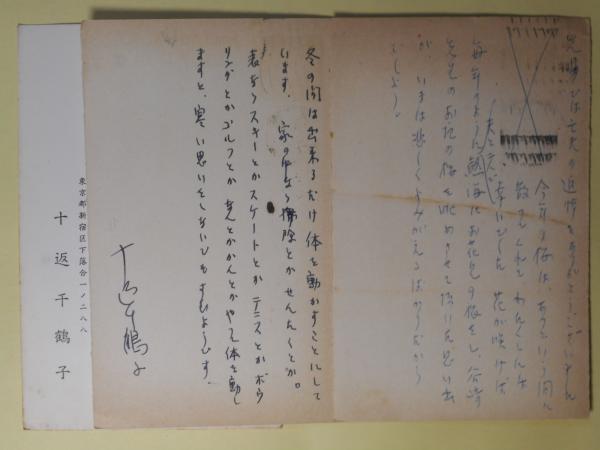 は亡夫の追悼をありがとうございました
今年の桜は、あっという間に
散ってくれて、わたくしには
幸いでした 花が咲けば
夫と二人で
毎年のように熱海にお花見の旅をし、谷崎
先生のお宅の桜を眺めさせて頂いた思い出
が、いまは悲しくよみがえるばかりだから
でしょう。
冬の間は出来るだけ体を動かすことにして
います。家の中なら掃除とかせんたくとか。
表ならスキーとかスケートとかテニスとかボウ
リングとかゴルフとか なんとかかんとかやって体を動し
ますと、寒い思いをしないでもすむようです。
十返千鶴子
東京都新宿区下落合一ノ二八八
十返千鶴子